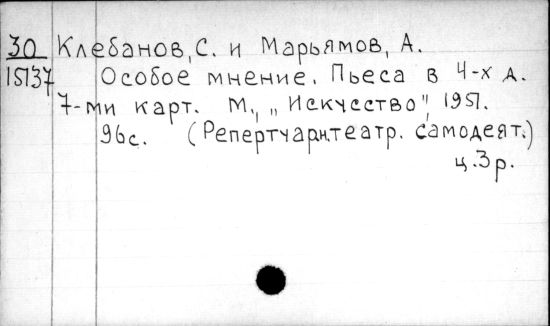 30 Клебанов, С. и Марьямов, А.
15137 Особое мнение. Пьеса в 4-х д.
7-ми карт. М., „Искусство", 1957.
96с. (Репертуарн.театр. самодеят.)
ц.3р.